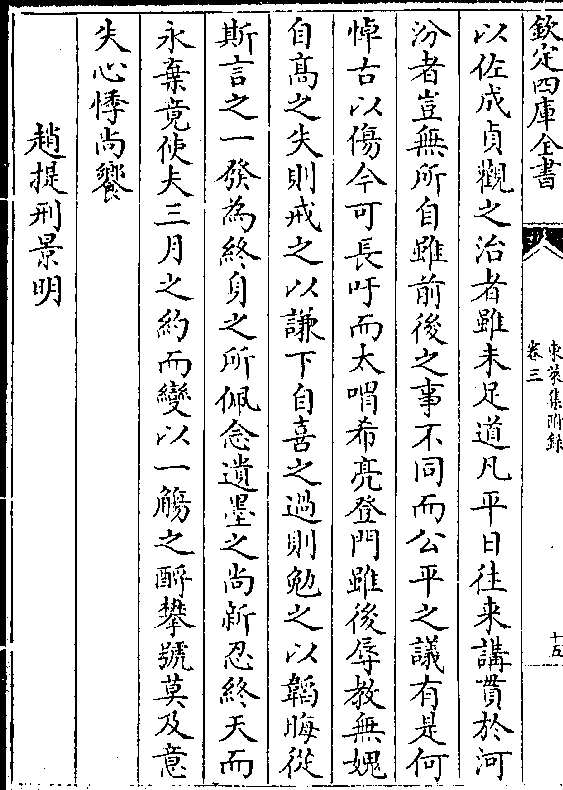 欽定四庫全書
東萊集附錄
卷三
十五
以佐成貞觀之治者雖未足道凡平日往来講貫於河
汾者豈無所自雖前後之事不同而公平之議有是何
悼古以傷今可長吁而太喟希亮登門雖後辱教無媿
自髙之失則戒之以謙下自喜之過則勉之以韜晦從
斯言之一發為終身之所佩念遺墨之尚新忍終天而
永棄竟使夫三月之約而變以一觴之酹攀號莫及意
失心悸尚饗
趙提刑景明